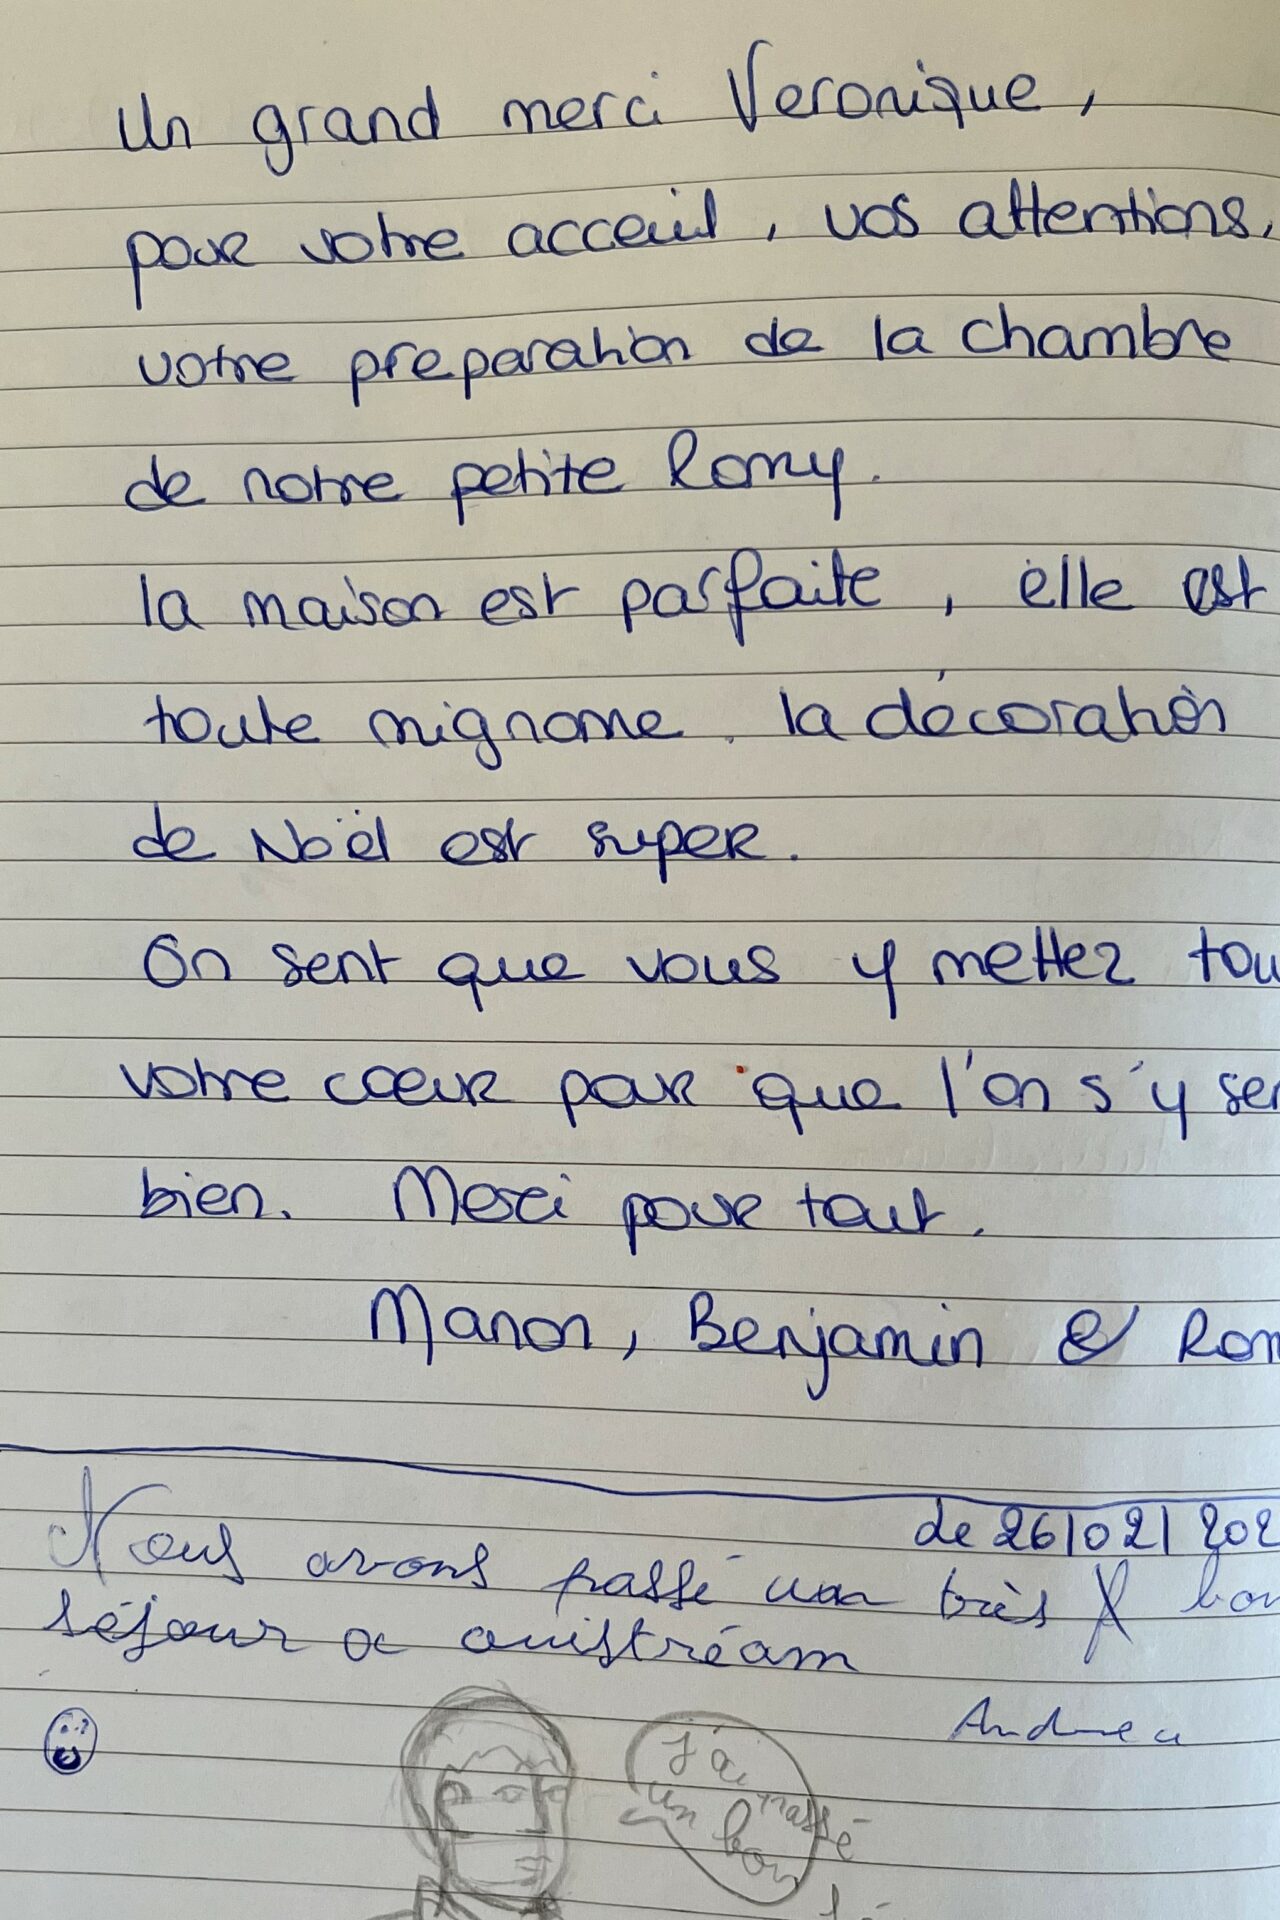 Un grand merci Veronique,
pour votre acceuil, vos attentions,
votre preparation de la chambre
de notre petite Romy.
la maison est parfaite, elle est
toute mignonne. la décoration
de Noël est super.
On sent que vous y mettez tou
votre cœur pour que l'on s'y sen
bien. Merci pour tout.
Manon, Benjamin & Rom
de 26/02/202
Nous avons passé un très bon
séjour a ouistréam
Andrea
j'ai
passé
un bon